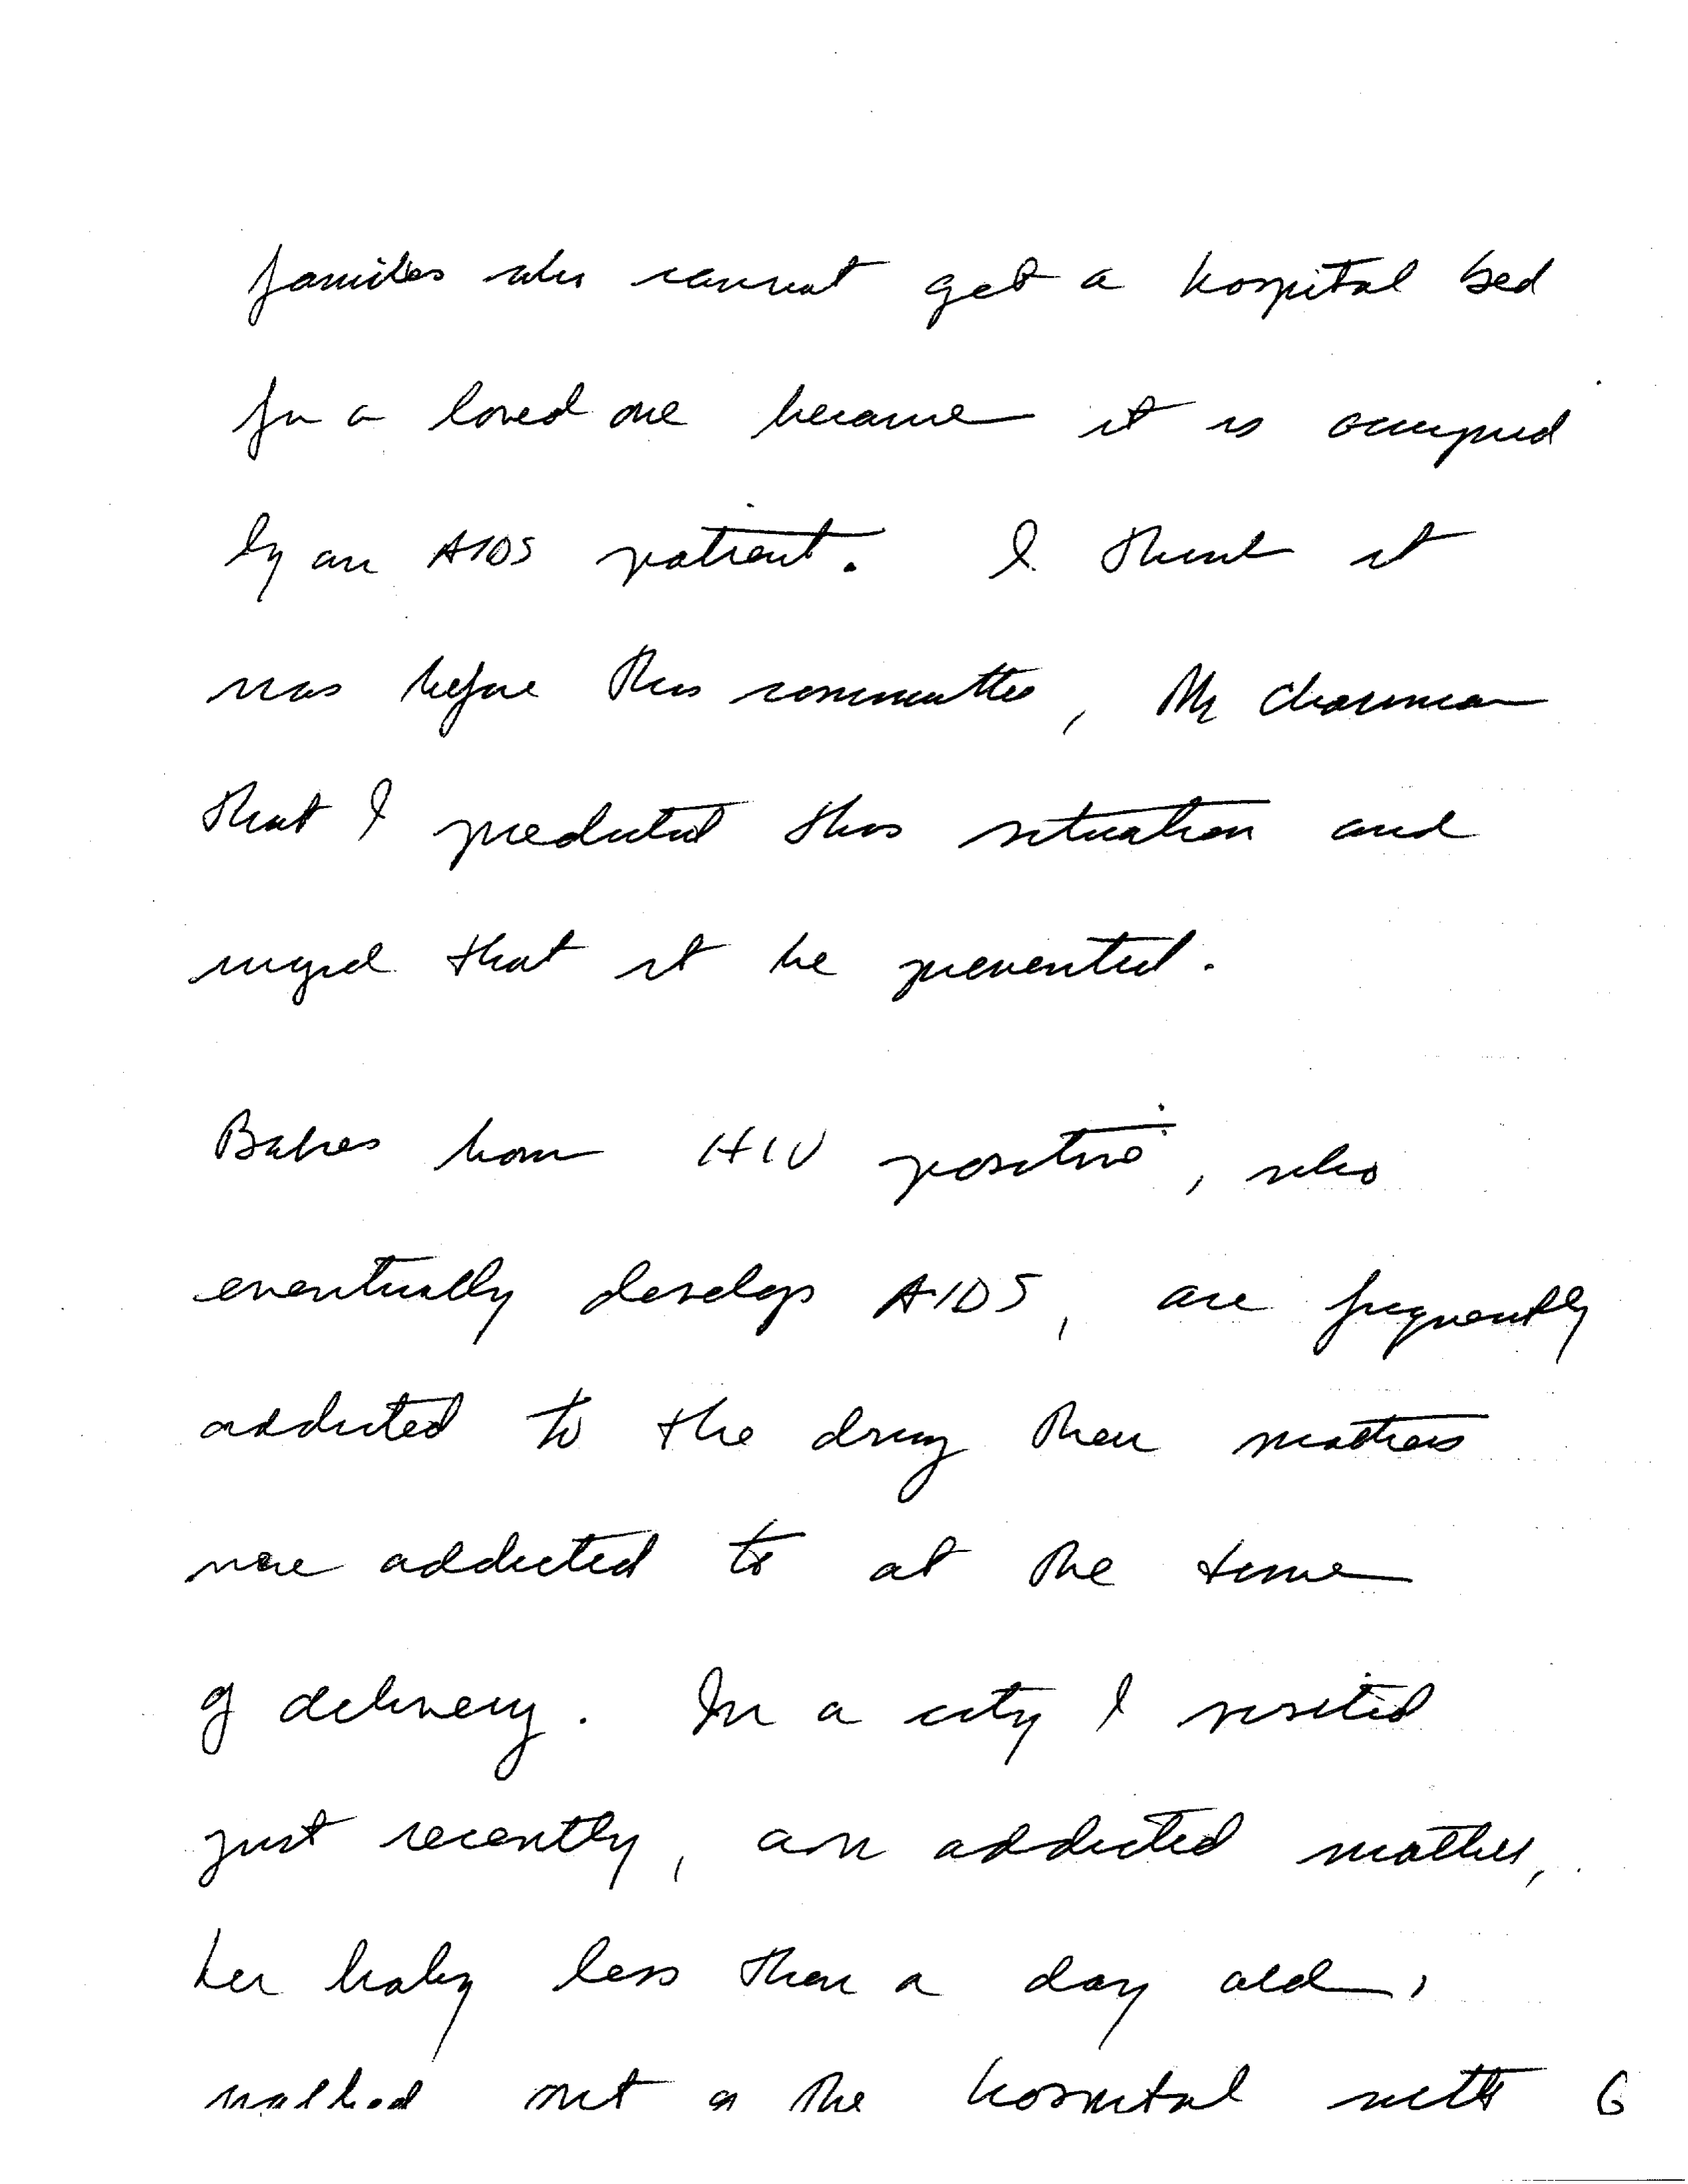 families who cannot get a hospital bed
for a loved one because it is occupied
by an AIDS patient. I think it
was before this committee, Mr Chairman
that I predicted this situation and
urged that it be prevented.
Babies born HIV positive, who
eventually develop AIDS, are frequently
addicted to the drug their mothers
were addicted to at the time
of delivery. In a city I visited
just recently, an addicted mother,
her baby less than a day old,
walked out of the hospital with 6